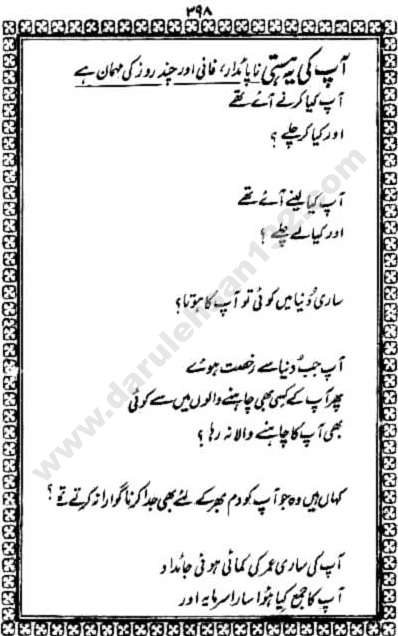 ۳۹۸
آپ کی یہ ہستی ناپائدار، فانی اور چند روز کی مہمان ہے
آپ کیا کرنے آئے تھے
اور کیا کر چلے ؟
آپ کیا لینے آئے تھے
اور کیا لے چلے ؟
ساری دُنیا میں کوئی تو آپ کا ہوتا ؟
آپ جب دنیا سے رخصت ہوئے
پھر آپ کے کسی بھی چاہنے والوں میں سے کوئی
بھی آپ کا چاہنے والا نہ رہا ؟
کہاں ہیں وہ جو آپ کو دم بھر کے لئے بھی جدا کرنا گوارا نہ کرتے تھے ؟
آپ کی ساری عمر کی کمائی ہوئی جائداد
آپ کا جمع کیا ہُوا سارا سرمایہ اور
www.darulehsan132.com